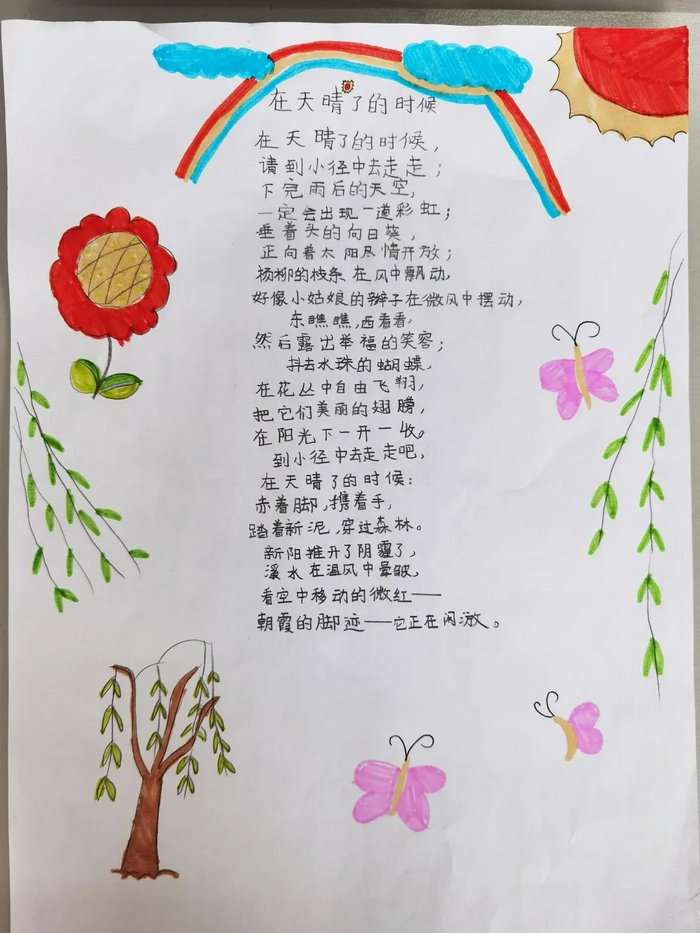 在天晴了的时候
在天晴了的时候，
请到小径中去走走；
下完雨后的天空，
一定会出现一道彩虹；
垂着头的向日葵，
正向着太阳尽情开放；
杨柳的枝条在风中飘动，
好像小姑娘的辫子在微风中摆动，
东瞧瞧，西看看，
然后露出幸福的笑容；
抖去水珠的蝴蝶，
在花丛中自由飞翔，
把它们美丽的翅膀，
在阳光下一开一收。
到小径中去走走吧，
在天晴了的时候：
赤着脚，携着手，
踏着新泥，穿过森林。
新阳推开了阴霾了，
溪水在温风中晕皱，
看空中移动的微红——
朝霞的脚迹——它正在闪激。